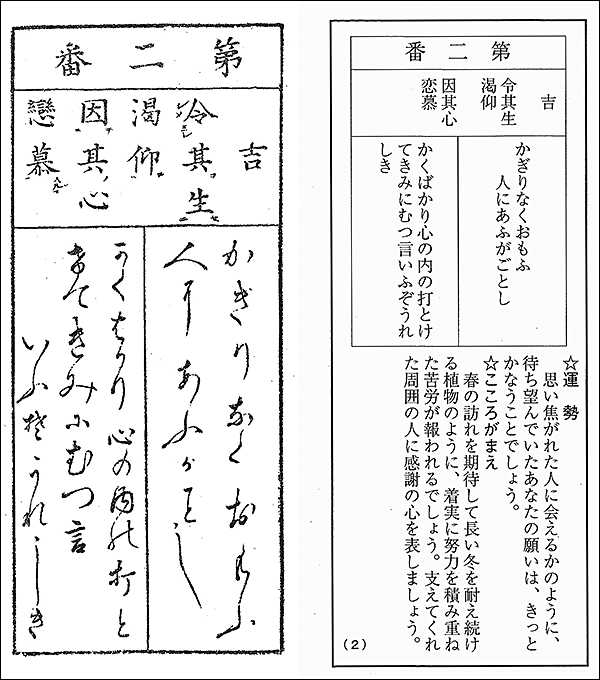 第二番
吉
令其生
渇仰
因其心
戀慕
かぎりなくおもふ
人にあふがことし
かくはかり心の内の打と
けてきみにむつ言
いふぞうれしき
第二番
吉
令其生
渇仰
因其心
恋慕
かぎりなくおもふ
人にあふがごとし
かくばかり心の内の打とけ
てきみにむつ言いふぞうれ
しき
☆運 勢
思い焦がれた人に会えるかのように、
待ち望んでいたあなたの願いは、きっと
かなうことでしょう。
☆こころがまえ
春の訪れを期待して長い冬を耐え続け
る植物のように、着実に努力を積み重ね
た苦労が報われるでしょう。支えてくれ
た周囲の人に感謝の心を表しましょう。
(2)